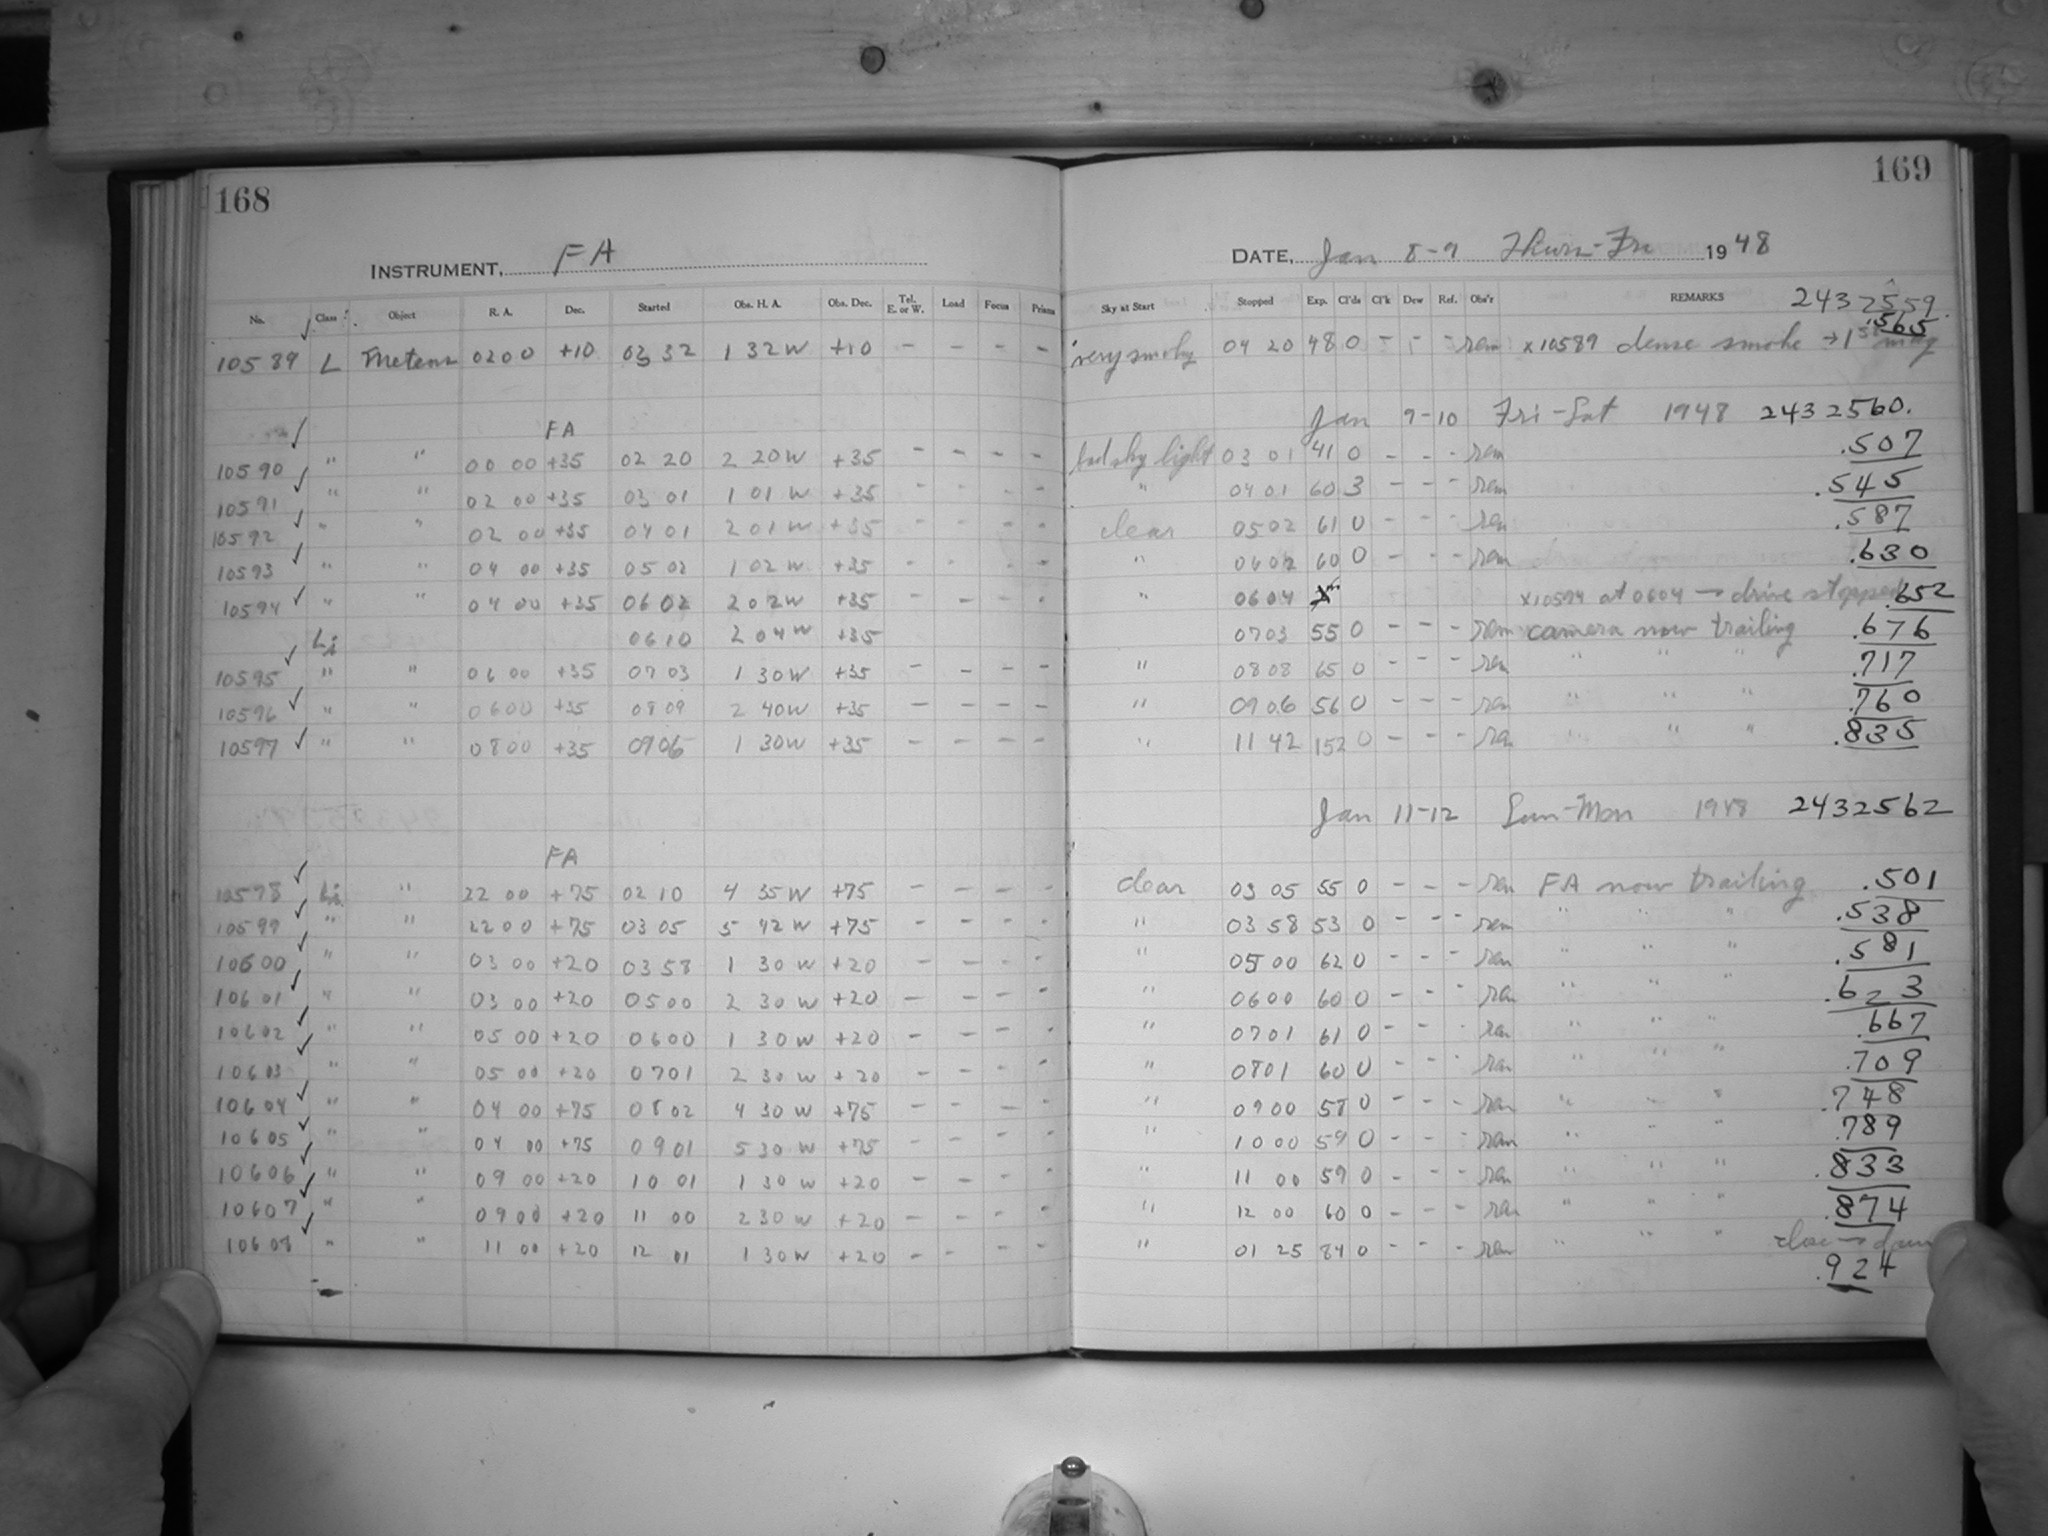 168
169
INSTRUMENT, FA
DATE, Jan 8-9 Thurs-Fri 1948
No. Class Object R. A. Dec. Started Obs. H. A. Obs. Dec. Tel. E. or W. Load Focus Prisms Sky at Start Stopped Exp. Cl'ds Cl'k Dew Ref. Obs'r REMARKS 2432559.
.565
10589 L Meteors 0200 +10 03 32 1 32W +10 - - - - very smoky 04 20 48 0 - - - rem x10589 dense smoke → 1st
Jan 9-10 Fri-Sat 1948 2432560.
FA
10590 " " 00 00 +35 02 20 2 20W +35 - - - - bad sky light 03 01 41 0 - - - rem .507
10591 " " 02 00 +35 03 01 1 01 W +35 - - - - " 04 01 60 3 - - - rem .545
10592 " " 02 00 +35 04 01 2 01W +35 - - - - clear 05 02 61 0 - - - rem .587
10593 " " 04 00 +35 05 02 1 02 W +35 - - - - " 06 02 60 0 - - - rem .630
10594 " " 04 00 +35 06 02 2 02W +35 - - - - " 0604 x10594 at 0604 → drive stopped .652
Li 06 10 2 04W +35 0703 55 0 - - - rem camera now trailing .676
10595 " " 06 00 +35 07 03 1 30W +35 - - - - " 08 08 65 0 - - - rem " " " .717
10596 " " 0600 +35 08 09 2 40W +35 - - - - " 09 06 56 0 - - - rem " " " .760
10597 " " 0800 +35 0906 1 30W +35 - - - - " 11 42 152 0 - - - rem " " " .835
Jan 11-12 Sun-Mon 1948 2432562
FA
10598 Li " 22 00 +75 02 10 4 35W +75 - - - - clear 03 05 55 0 - - - rem FA now trailing .501
10599 " " 22 00 +75 03 05 5 42W +75 - - - - " 03 58 53 0 - - - rem " " " .538
10600 " " 03 00 +20 03 58 1 30 W +20 - - - - " 05 00 62 0 - - - rem " " " .581
10601 " " 03 00 +20 05 00 2 30 W +20 - - - - " 06 00 60 0 - - - rem " " " .623
10602 " " 05 00 +20 06 00 1 30W +20 - - - - " 07 01 61 0 - - - rem " " " .667
10603 " " 05 00 +20 07 01 2 30 W +20 - - - - " 08 01 60 0 - - - rem " " " .709
10604 " " 04 00 +75 08 02 4 30 W +75 - - - - " 09 00 58 0 - - - rem " " " .748
10605 " " 04 00 +75 09 01 5 30 W +75 - - - - " 10 00 59 0 - - - rem " " " .789
10606 " " 09 00 +20 10 01 1 30 W +20 - - - - " 11 00 59 0 - - - rem " " " .833
10607 " " 09 00 +20 11 00 2 30 W +20 - - - - " 12 00 60 0 - - - rem " " " .874
10608 " " 11 00 +20 12 01 1 30W +20 - - - - " 01 25 84 0 - - - rem " " " close → dawn
.924